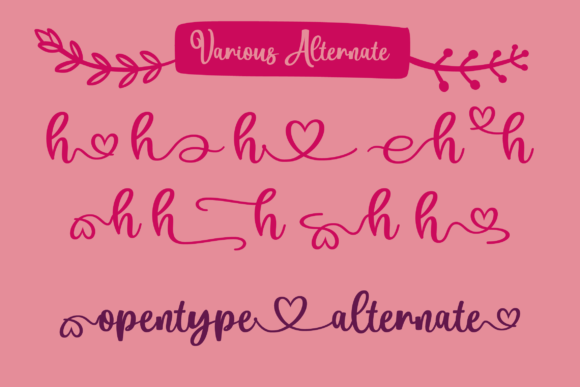 Various Alternate
h h h h h
h h h h h
opentype alternate